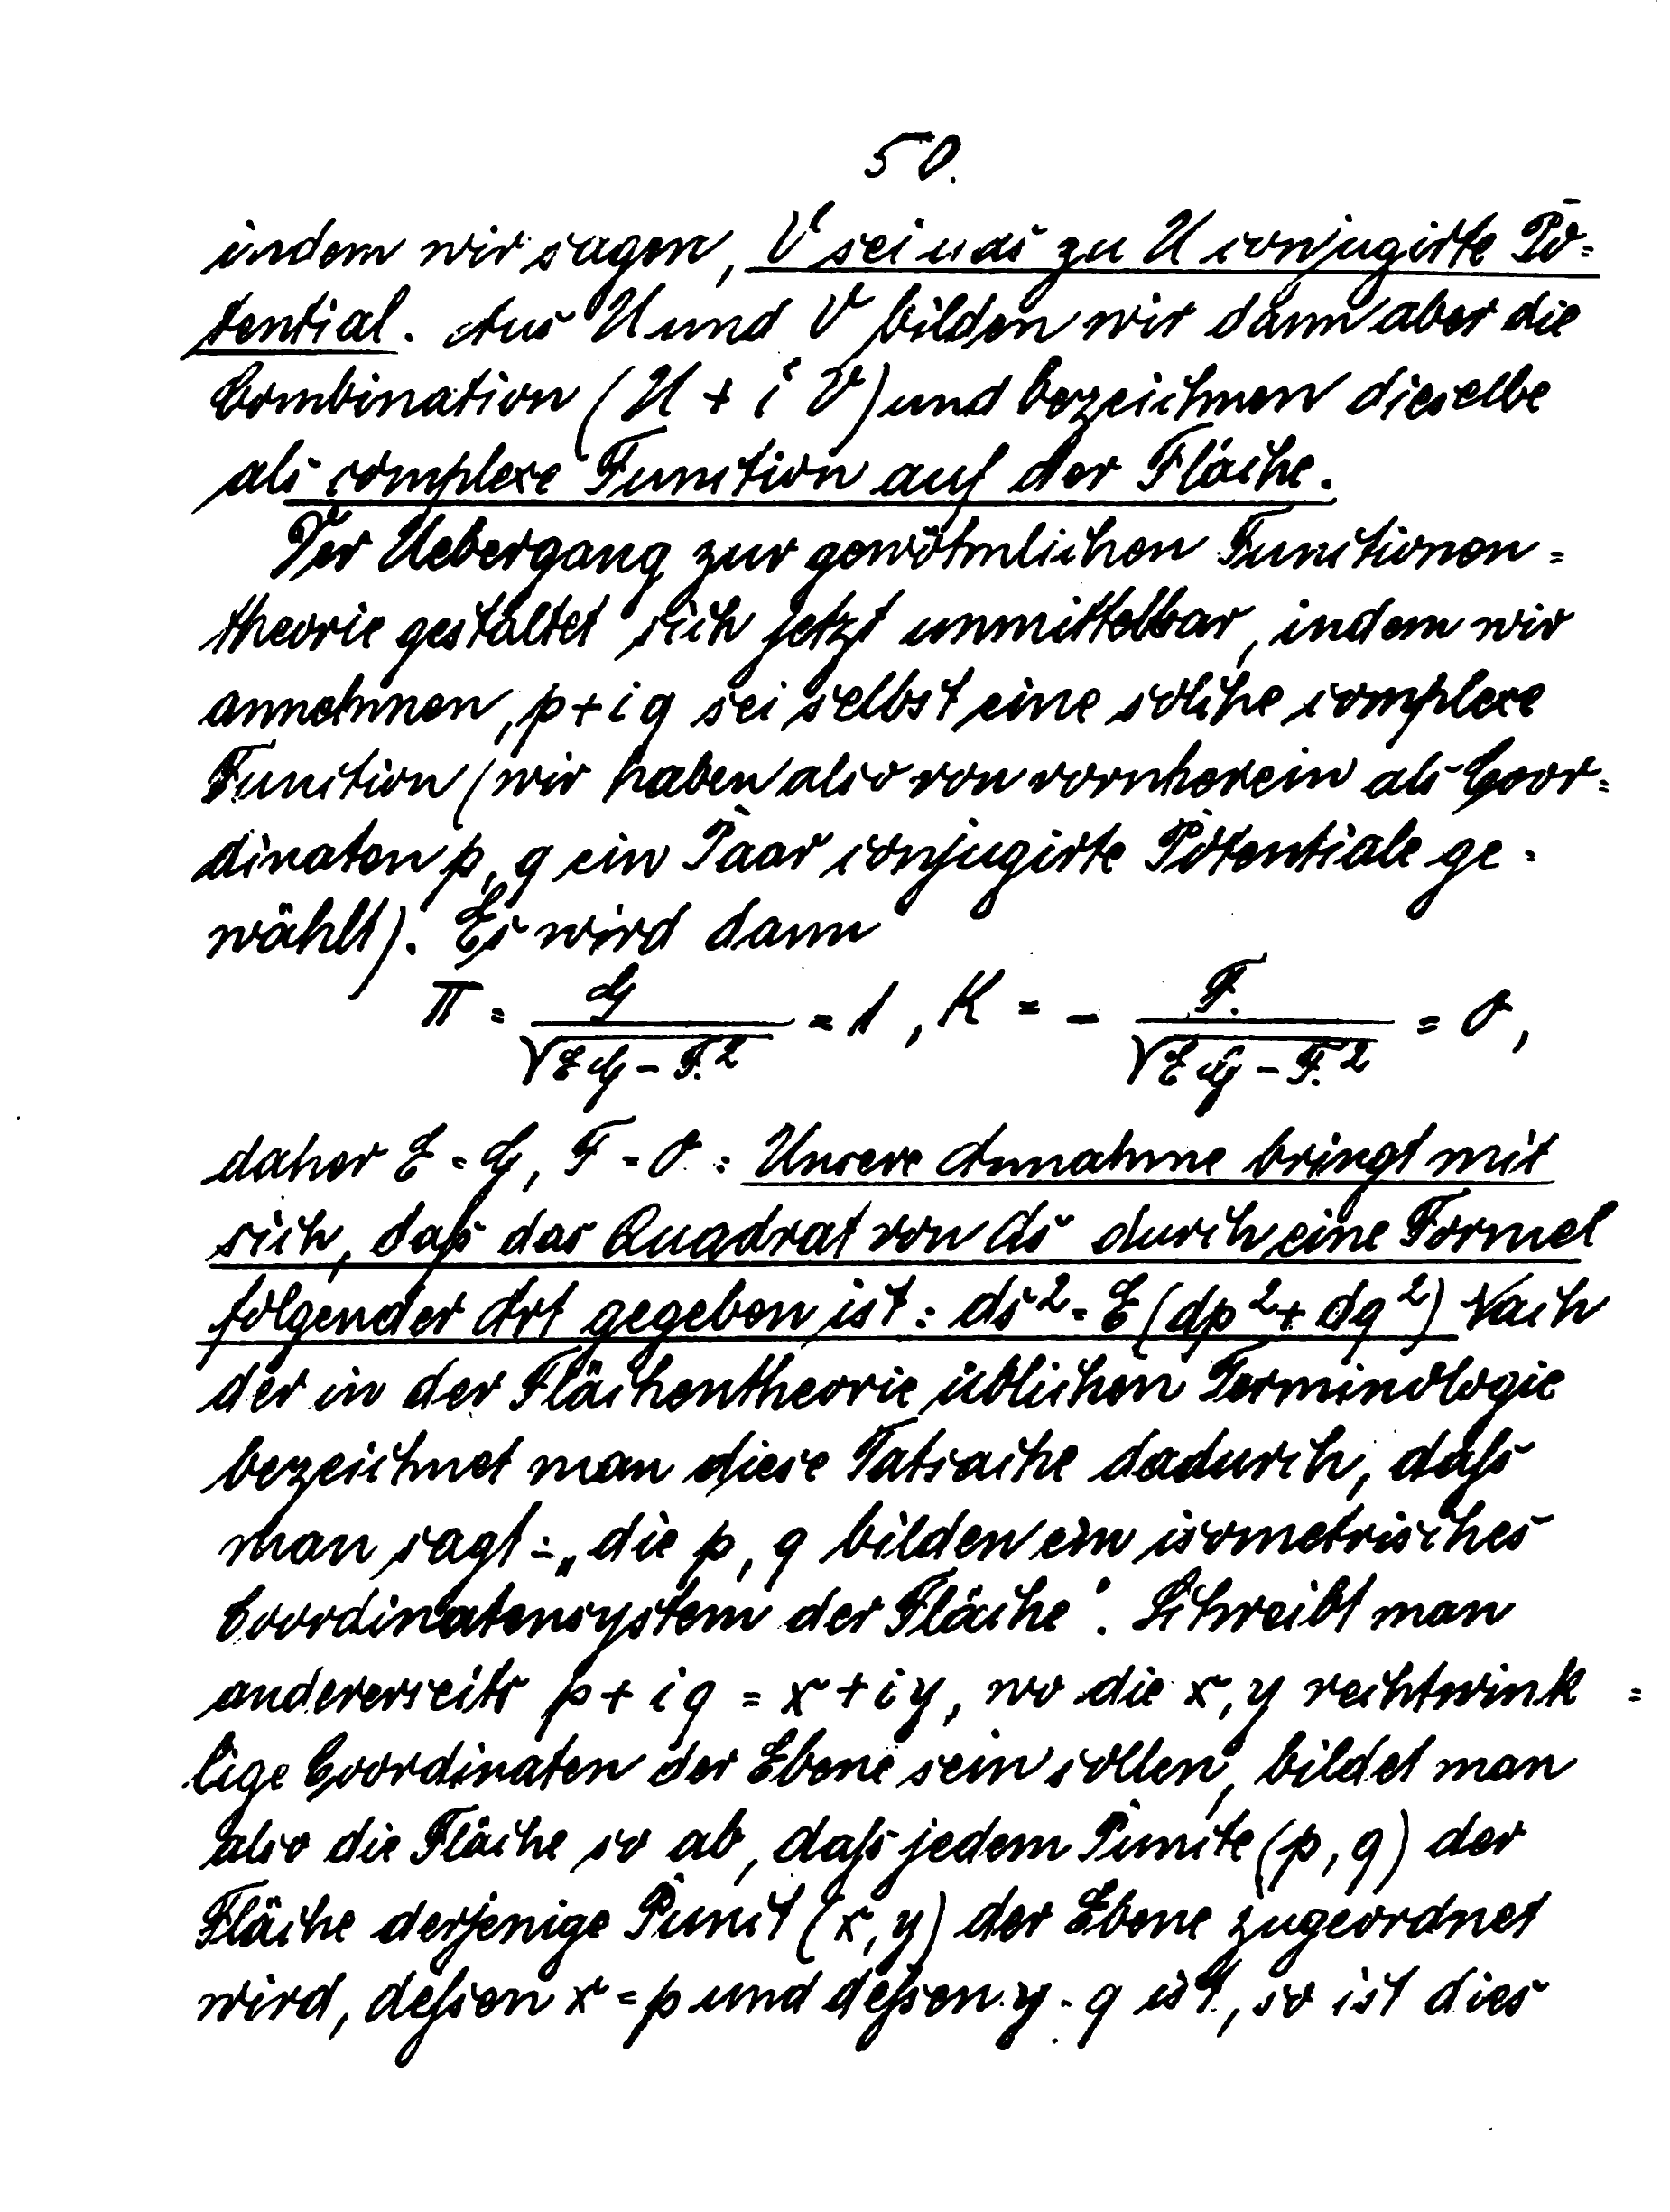 50.
indem wir sagen, V sei das zu U conjugirte Po=
tential. Aus U und V bilden wir dann aber die
Combination (U + i V) und bezeichnen dieselbe
als complexe Function auf der Fläche.
Der Uebergang zur gewöhnlichen Functionen=
theorie gestaltet sich jetzt unmittelbar, indem wir
annehmen, p + i q sei selbst eine solche complexe
Function (wir haben also von vornherein als Coor=
dinaten p, q ein Paar conjugirte Potentiale ge=
wählt). Es wird dann
π = G / √(EG - F²) = 1, K = - F / √(EG - F²) = 0,
daher E = G, F = 0 : Unsere Annahme bringt mit
sich, daß das Quadrat von ds durch eine Formel
folgender Art gegeben ist : ds² = E (dp² + dq²) Nach
der in der Flächentheorie üblichen Terminologie
bezeichnet man diese Tatsache dadurch, daß
man sagt : „die p, q bilden ein isometrisches
Coordinatensystem der Fläche“. Schreibt man
andererseits p + i q = x + i y, wo die x, y rechtwink=
lige Coordinaten der Ebene sein sollen, bildet man
also die Fläche so ab, daß jedem Puncte (p, q) der
Fläche derjenige Punct (x, y) der Ebene zugeordnet
wird, deßen x = p und deßen y = q ist, so ist dies